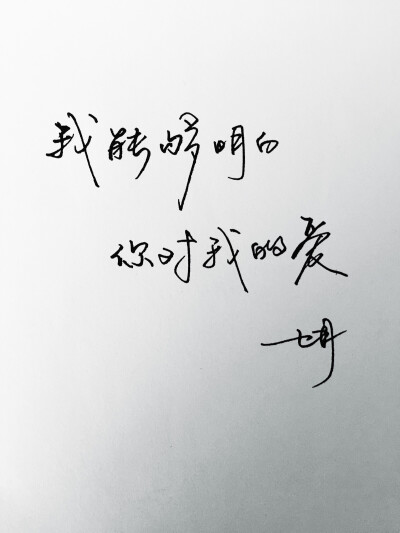 我能够明白
你对我的爱
七月